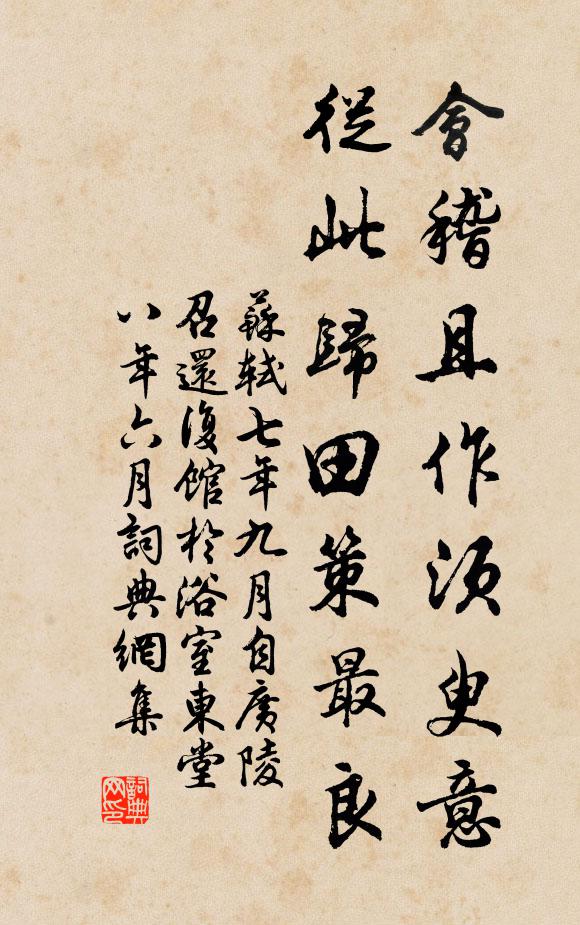 會稽且作須臾意
從此歸田策最良
蘇軾七年九月自廣陵
召還復館於浴室東堂
八年六月詞典網集
詞典网印